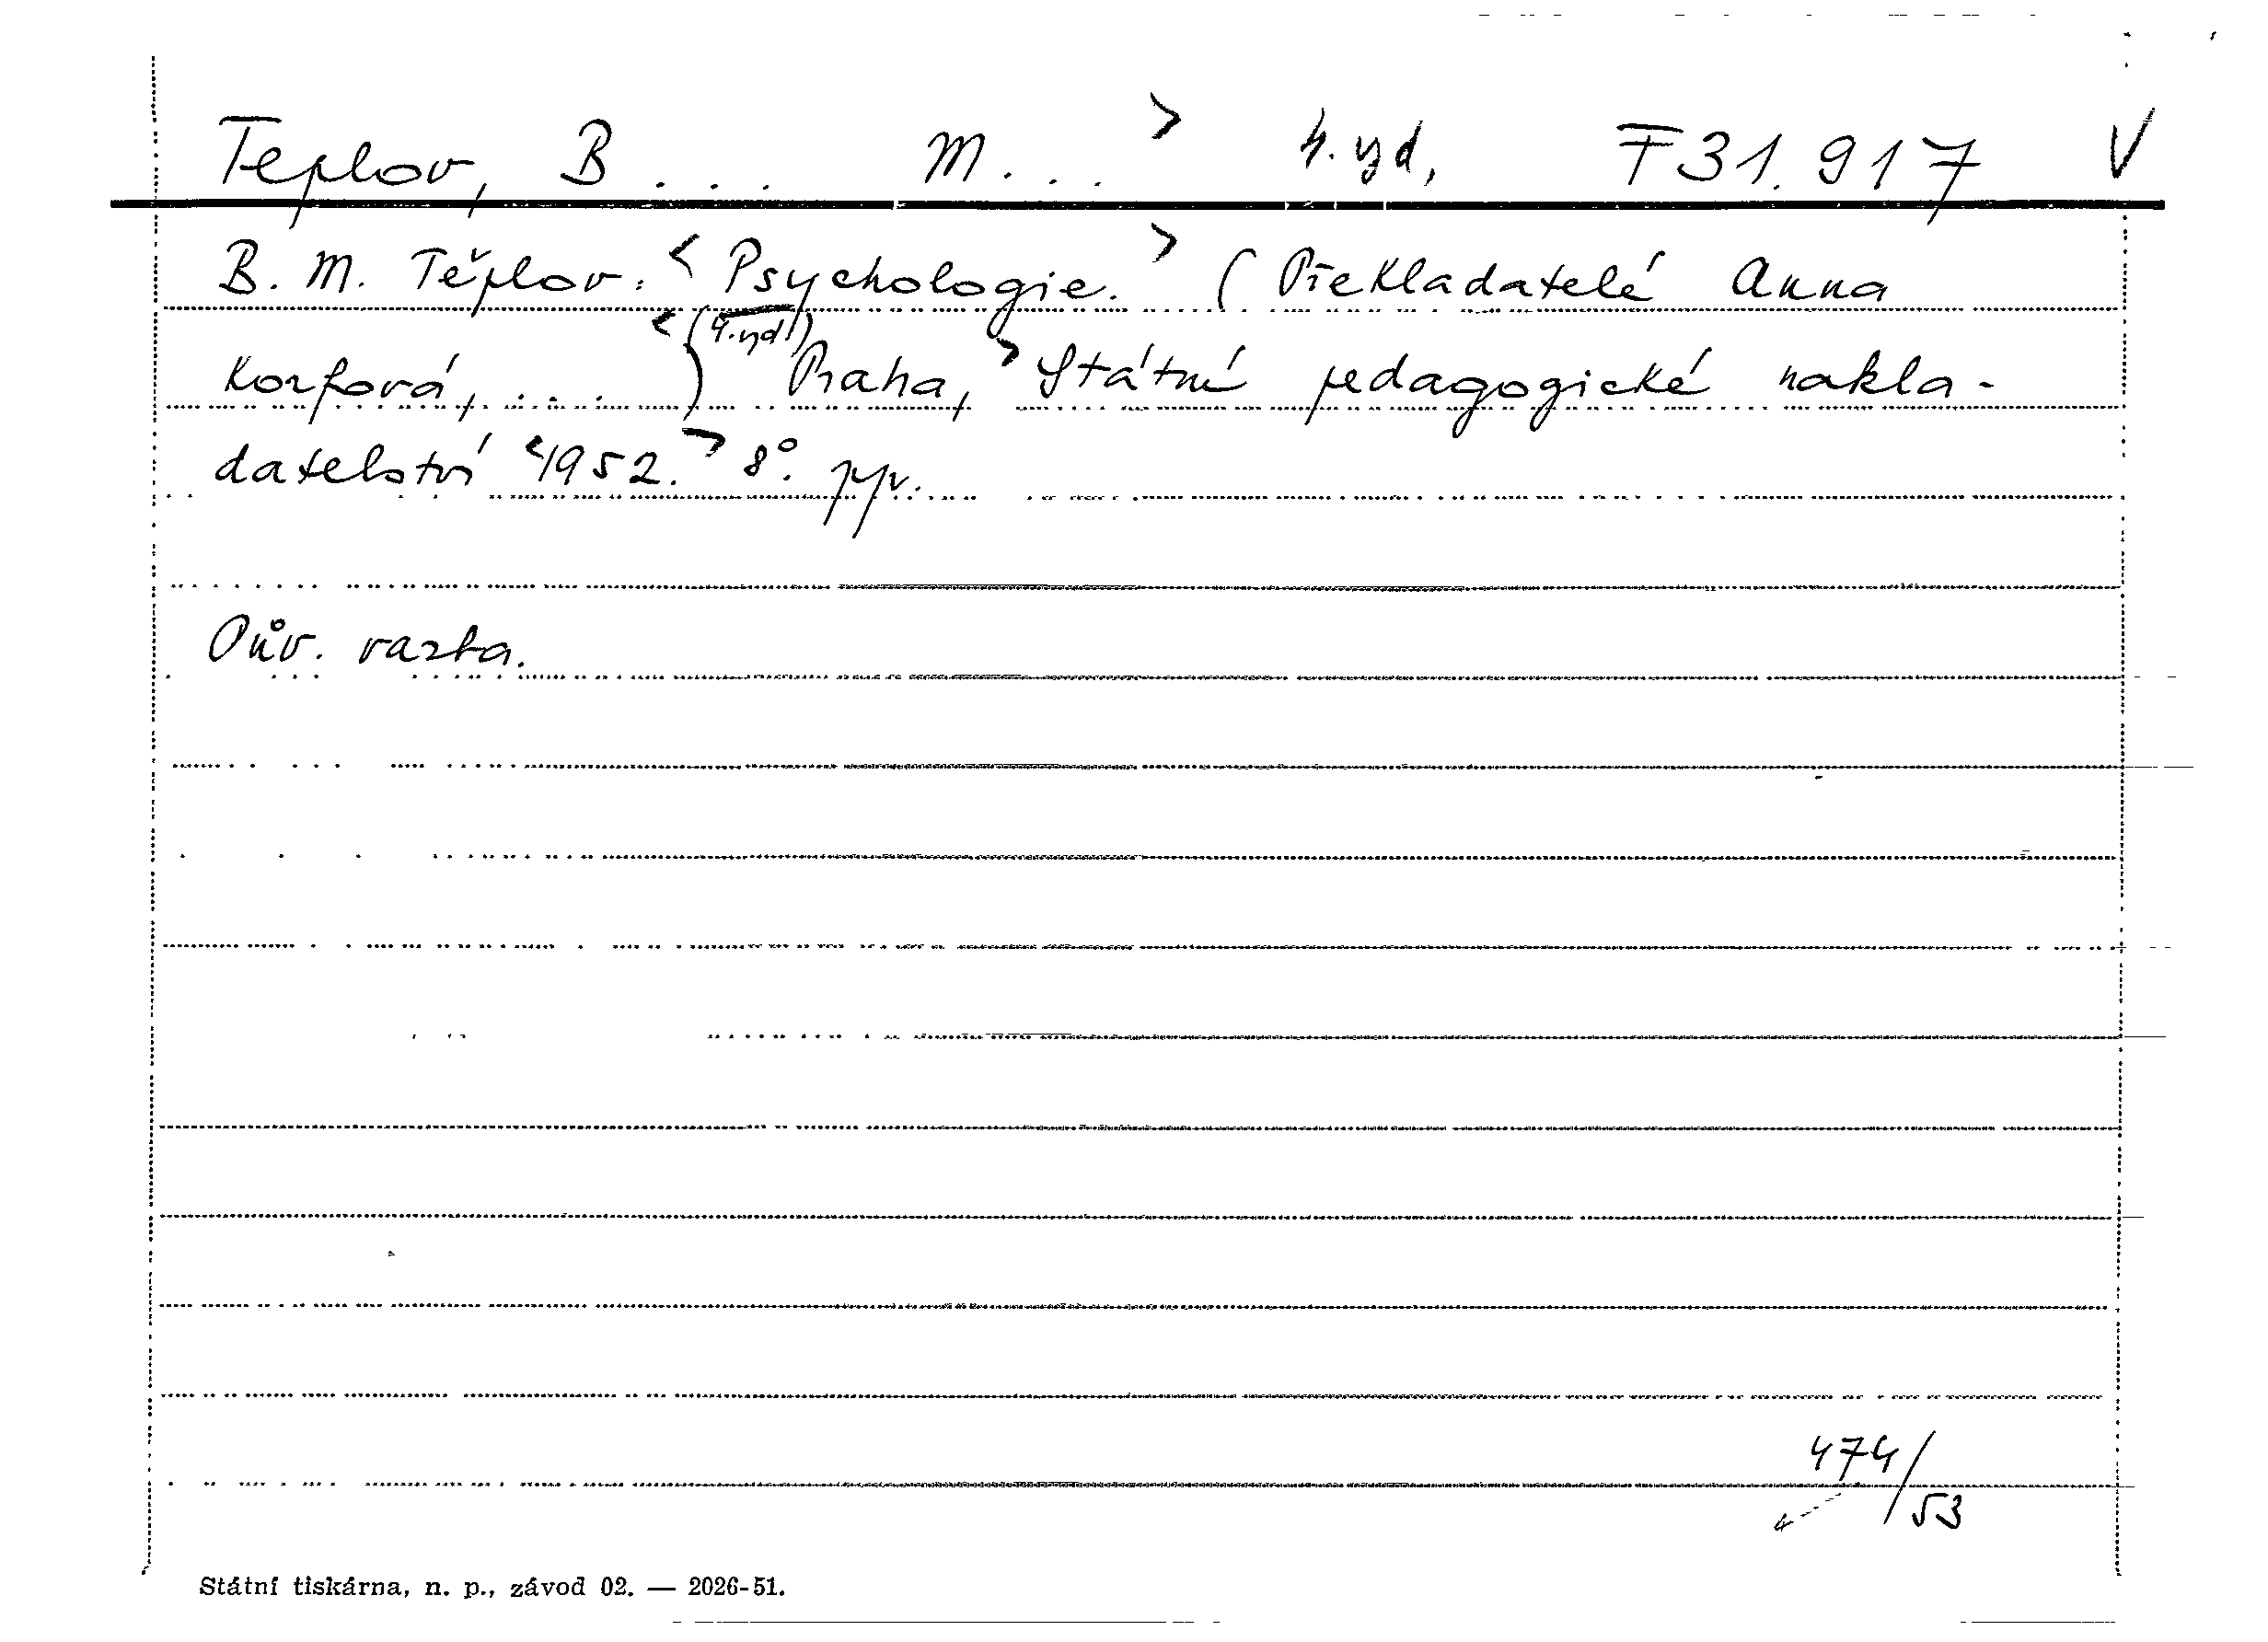 Teplov, B... M...> 4. vyd. F 31.917 V
B. M. Těplov: <Psychologie.> (Překladatelé Anna
<(4. vyd.)
Korfová, ...) Praha, > Státní pedagogické nakla-
datelství <1952.> 8°. ppv.
Pův. vazba.
474/
53
Státní tiskárna, n. p., závod 02. — 2026-51.